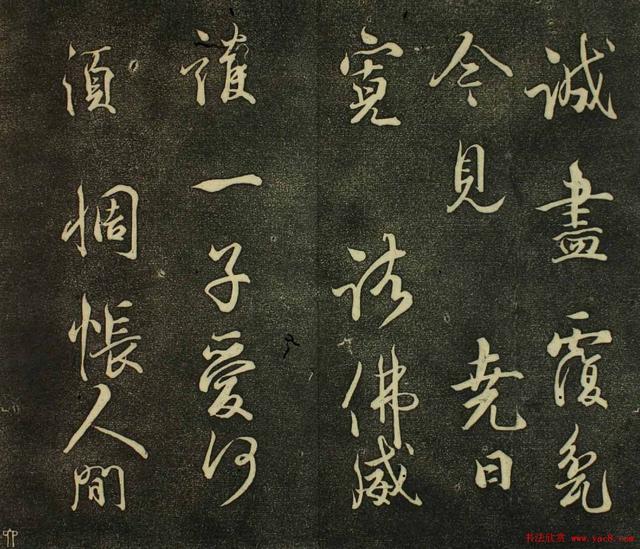 誠盡覆
今見 堯日
寬 諸佛威
護一子愛何
須惆悵人間
书法欣赏 www.yac8.com